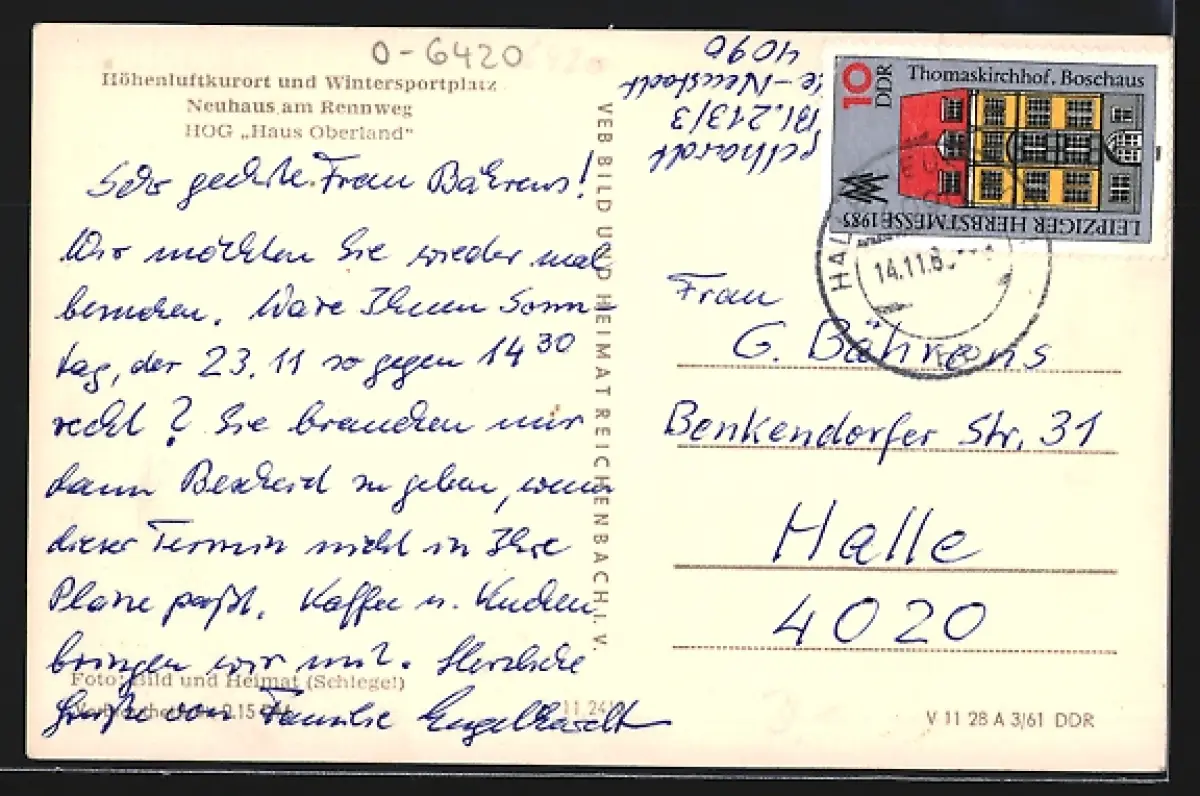 O-6420
Höhenluftkurort und Wintersportplatz
Neuhaus am Rennweg
HOG „Haus Oberland"
Sehr geehrte Frau Bährens!
Wir möchten Sie wieder mal
besuchen. Wäre Ihnen Sonn-
tag, der 23.11 so gegen 14 30
recht? Sie brauchen nur
dann Bescheid zu geben, wenn
dieser Termin nicht in Ihre
Pläne paßt. Kaffee u. Kuchen
bringen wir mit. Herzliche
Grüße von Familie Engelhardt
Foto: Bild und Heimat (Schlegel)
VEB BILD UND HEIMAT REICHENBACH I. V.
gelhardt
Bl. 213/3
e-Neustadt
4090
10
DDR
Thomaskirchhof, Bosehaus
LEIPZIGER HERBSTMESSE 1985
HAL
14.11.8
Frau
G. Bährens
Benkendorfer Str. 31
Halle
4020
V 11 28 A 3/61 DDR